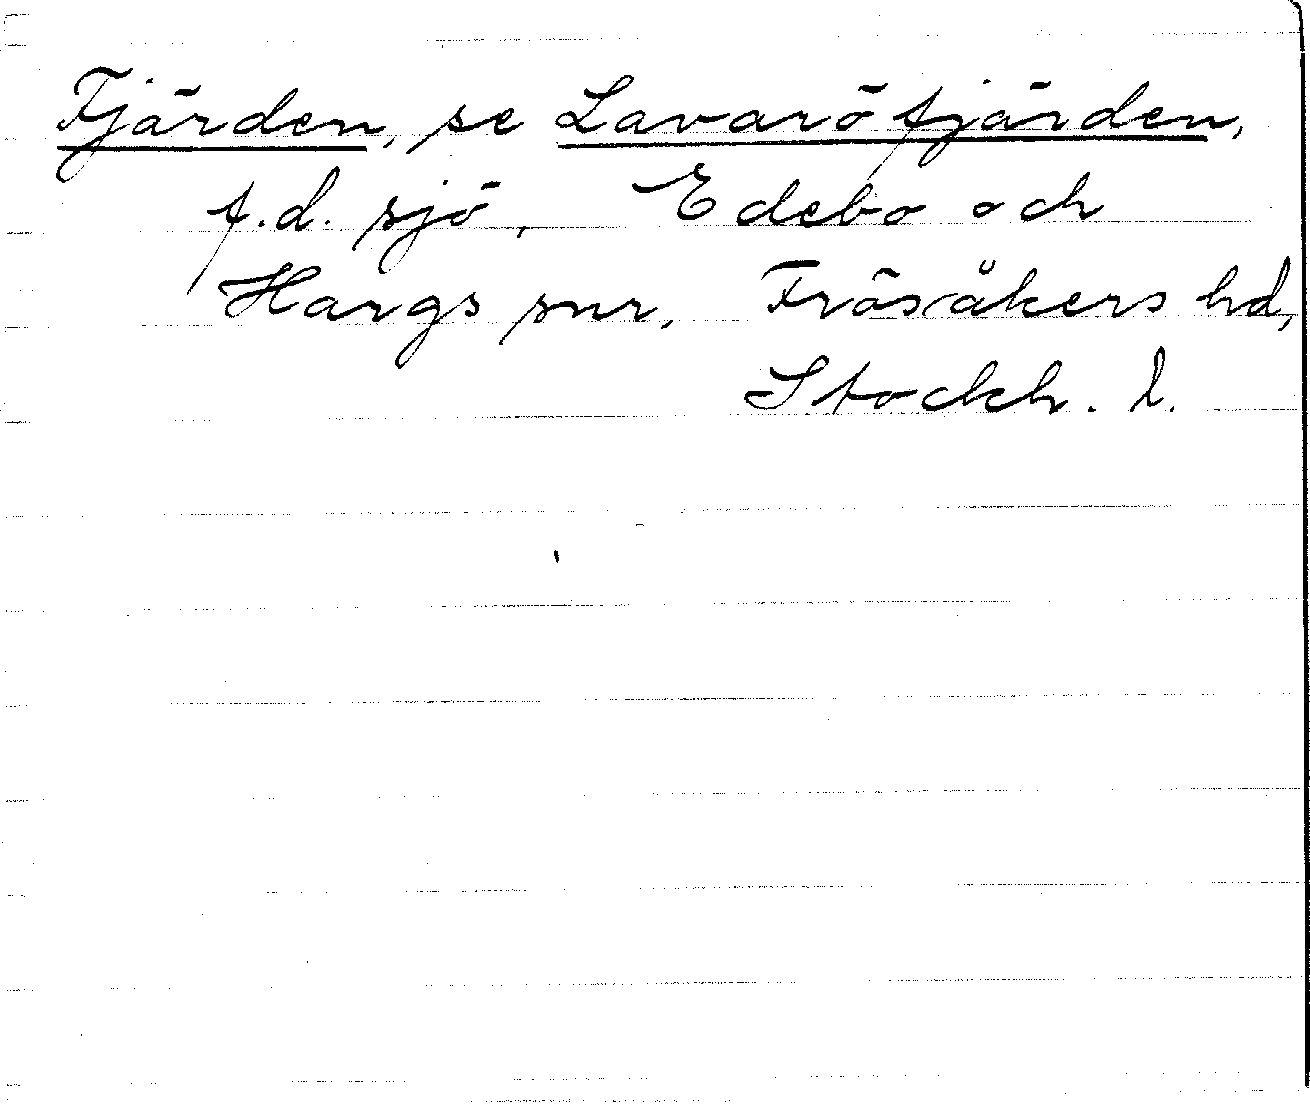 Fjärden, se Lavaröfjärden,
f.d. sjö, Edebo och
Hargs snr, Frösåkers hd,
Stockh. l.